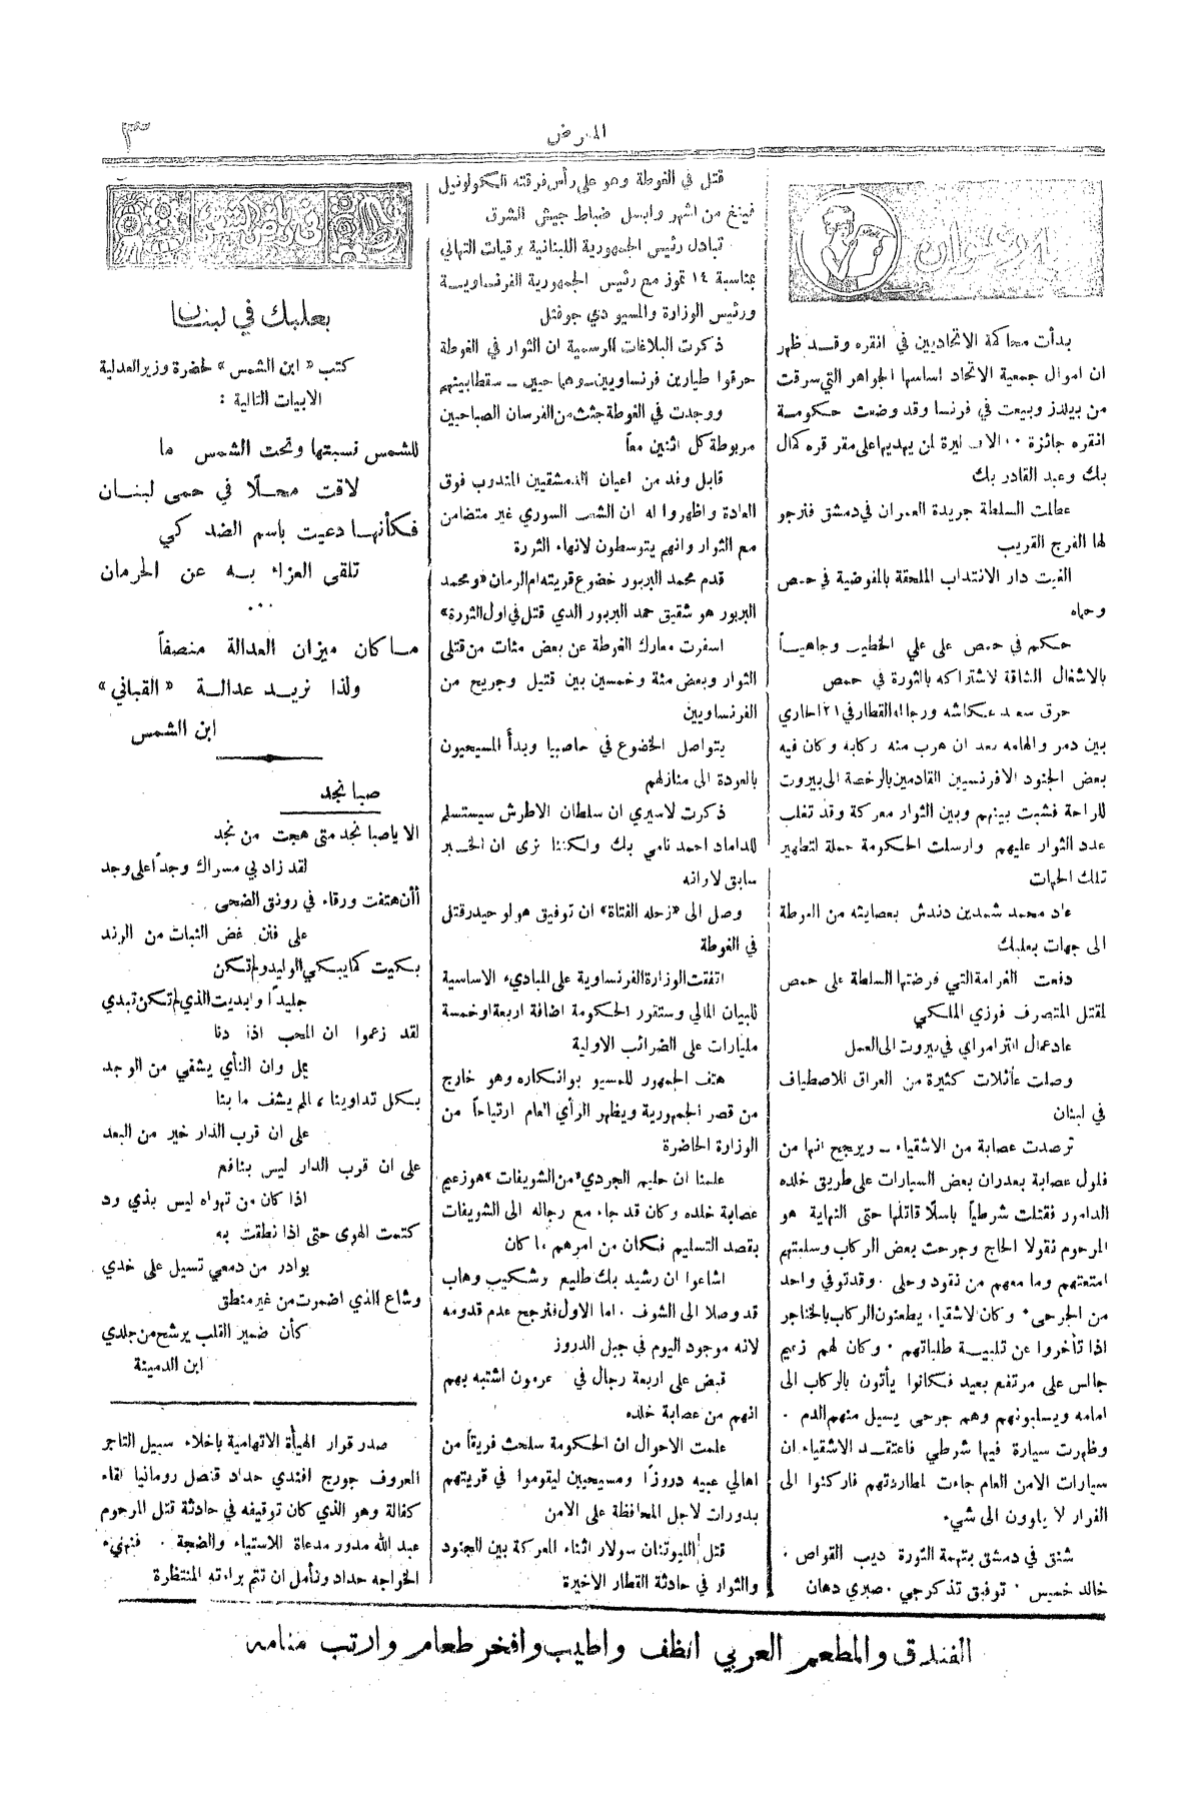 المعرض
٣
بلا عنوان
بدأت محاكمة الاتحاديين في انقره وقد ظهر
ان اموال جمعية الاتحاد اساسها الجواهر التي سرقت
من بيلدز وبيعت في فرنسا وقد وضعت حكومة
انقره جائزة الاف ليرة لمن يهديها على مقر قره كمال
بك وعبد القادر بك
عطلت السلطة جريدة العمران في دمشق فنرجو
لها الفرج القريب
الغيت دار الانتداب الملحقة بالمفوضية في حمص
وحماه
حكم في حمص على علي الخطيب وجاهياً
بالاشغال الشاقة لاشتراكه بالثورة في حمص
حرق سعيد عكاشه ورجاله القطار في ٢١ الجاري
بين دمر والهامه بعد ان هرب منه ركابه وكان فيه
بعض الجنود الافرنسيين القادمين بالرخصة الى بيروت
للراحة فشبت بينهم وبين الثوار معركة وقد تغلب
عدد الثوار عليهم وارسلت الحكومة حملة لتطهير
تلك الجهات
عاد محمد شمدين دندش بعصابته من الغوطة
الى جهات بعلبك
دفعت الغرامة التي فرضتها السلطة على حمص
لمقتل المتصرف فوزي الملكي
عاد عمال الترامواي في بيروت الى العمل
وصلت عائلات كثيرة من العراق للاصطياف
في لبنان
ترصدت عصابة من الاشقياء – ويرجح انها من
فلول عصابة بعدران بعض السيارات على طريق خلده
الدامور فقتلت شرطياً باسلاً قاتلها حتى النهاية هو
المرحوم نقولا الحاج وجرحت بعض الركاب وسلبتهم
امتعتهم وما معهم من نقود وحلى . وقد توفي واحد
من الجرحى . وكان الاشقياء يطعنون الركاب بالخناجر
اذا تأخروا عن تلبية طلباتهم . وكان لهم زعيم
جالس على مرتفع بعيد فكانوا يأتون بالركاب الى
امامه ويسلبونهم وهم جرحى يسيل منهم الدم .
وظهرت سيارة فيها شرطي فاعتقد الاشقياء ان
سيارات الامن العام جاءت لمطاردتهم فاركنوا الى
الفرار لا ياوون الى شيء
شنق في دمشق بتهمة الثورة ديب القواص .
خالد خميس . توفيق تذكرجي . صبري دهان
قتل في الغوطة وهو على رأس فرقته الكولونيل
فينغ من اشهر وابسل ضباط جيش الشرق
تبادل رئيس الجمهورية اللبنانية برقيات التهاني
بمناسبة ١٤ تموز مع رئيس الجمهورية الفرنساوية
ورئيس الوزارة والمسيو دي جوفنل
ذكرت البلاغات الرسمية ان الثوار في الغوطة
حرقوا طيارين فرنساويين – وهما حيين – سقطا بينهم
ووجدت في الغوطة جثث من الفرسان الصباحيين
مربوطة كل اثنين معاً
قابل وفد من اعيان الدمشقيين المندوب فوق
العادة واظهروا له ان الشعب السوري غير متضامن
مع الثوار وانهم يتوسطون لانهاء الثورة
قدم محمد البربور خضوع قريته ام الرمان «ومحمد
البربور هو شقيق حمد البربور الذي قتل في اول الثورة»
اسفرت معارك الغوطة عن بعض مئات من قتلى
الثوار وبعض مئة وخمسين بين قتيل وجريح من
الفرنساويين
يتواصل الخضوع في حاصبيا وبدأ المسيحيون
بالعودة الى منازلهم
ذكرت لاسيري ان سلطان الاطرش سيستسلم
للداماد احمد نامي بك ولكننا نرى ان الخبر
سابق لاوانه
وصل الى «زحله الفتاة» ان توفيق هولو حيدر قتل
في الغوطة
اتفقت الوزارة الفرنساوية على المباديء الاساسية
للبيان المالي وستقرر الحكومة اضافة اربعة او خمسة
مليارات على الضرائب الاولية
هتف الجمهور للمسيو بوانكاره وهو خارج
من قصر الجمهورية ويظهر الرأي العام ارتياحاً من
الوزارة الحاضرة
علمنا ان حليم الجردي «من الشويفات» هو زعيم
عصابة خلده وكان قد جاء مع رجاله الى الشويفات
بقصد التسليم فكان من امرهم ما كان
اشاعوا ان رشيد بك طليع وشكيب وهاب
قد وصلا الى الشوف . اما الاول فنرجح عدم قدومه
لانه موجود اليوم في جبل الدروز
قبض على اربعة رجال في عرمون اشتبه بهم
انهم من عصابة خلده
علمت الاحوال ان الحكومة سلحت فريقاً من
اهالي عبيه دروزاً ومسيحيين ليقوموا في قريتهم
بدورات لاجل المحافظة على الامن
قتل الليوتنان سولار اثناء المعركة بين الجنود
والثوار في حادثة القطار الاخيرة
في رياض الشعر
بعلبك في لبنان
كتب «ابن الشمس» لحضرة وزير العدلية
الابيات التالية :
للشمس نسبتها وتحت الشمس ما
لاقت محلاً في حمى لبنان
فكأنها دعيت باسم الضد كي
تلقى العزاء به عن الحرمان
...
ما كان ميزان العدالة منصفاً
ولذا نريد عدالة «القباني»
ابن الشمس
صبا نجد
الا يا صبا نجد متى هجت من نجد
لقد زاد بي مسراك وجداً على وجد
أأن هتفت ورقاء في رونق الضحى
على فنن غض النبات من الرند
بكيت كما يبكي الوليد ولم تكن
جليداً وابديت الذي لم تكن تبدي
لقد زعموا ان المحب اذا دنا
يمل وان النأي يشفي من الوجد
بكل تداوينا ، فلم يشف ما بنا
على ان قرب الدار خير من البعد
على ان قرب الدار ليس بنافع
اذا كان من تهواه ليس بذي ود
كتمت الهوى حتى اذا نطقت به
بوادر من دمعي تسيل على خدي
وشاع الذي اضمرت من غير منطق
كأن ضمير القلب يرشح من جلدي
ابن الدمينة
صدر قرار الهيأة الاتهامية باخلاء سبيل التاجر
المعروف جورج افندي حداد قنصل رومانيا لقاء
كفالة وهو الذي كان توقيفه في حادثة قتل المرحوم
عبد الله مدور مدعاة للاستياء والضجة . فنهنيء
الخواجه حداد ونأمل ان تتم براءته المنتظرة
الفندق والمطعم العربي انظف واطيب وافخر طعام وارتب منامه